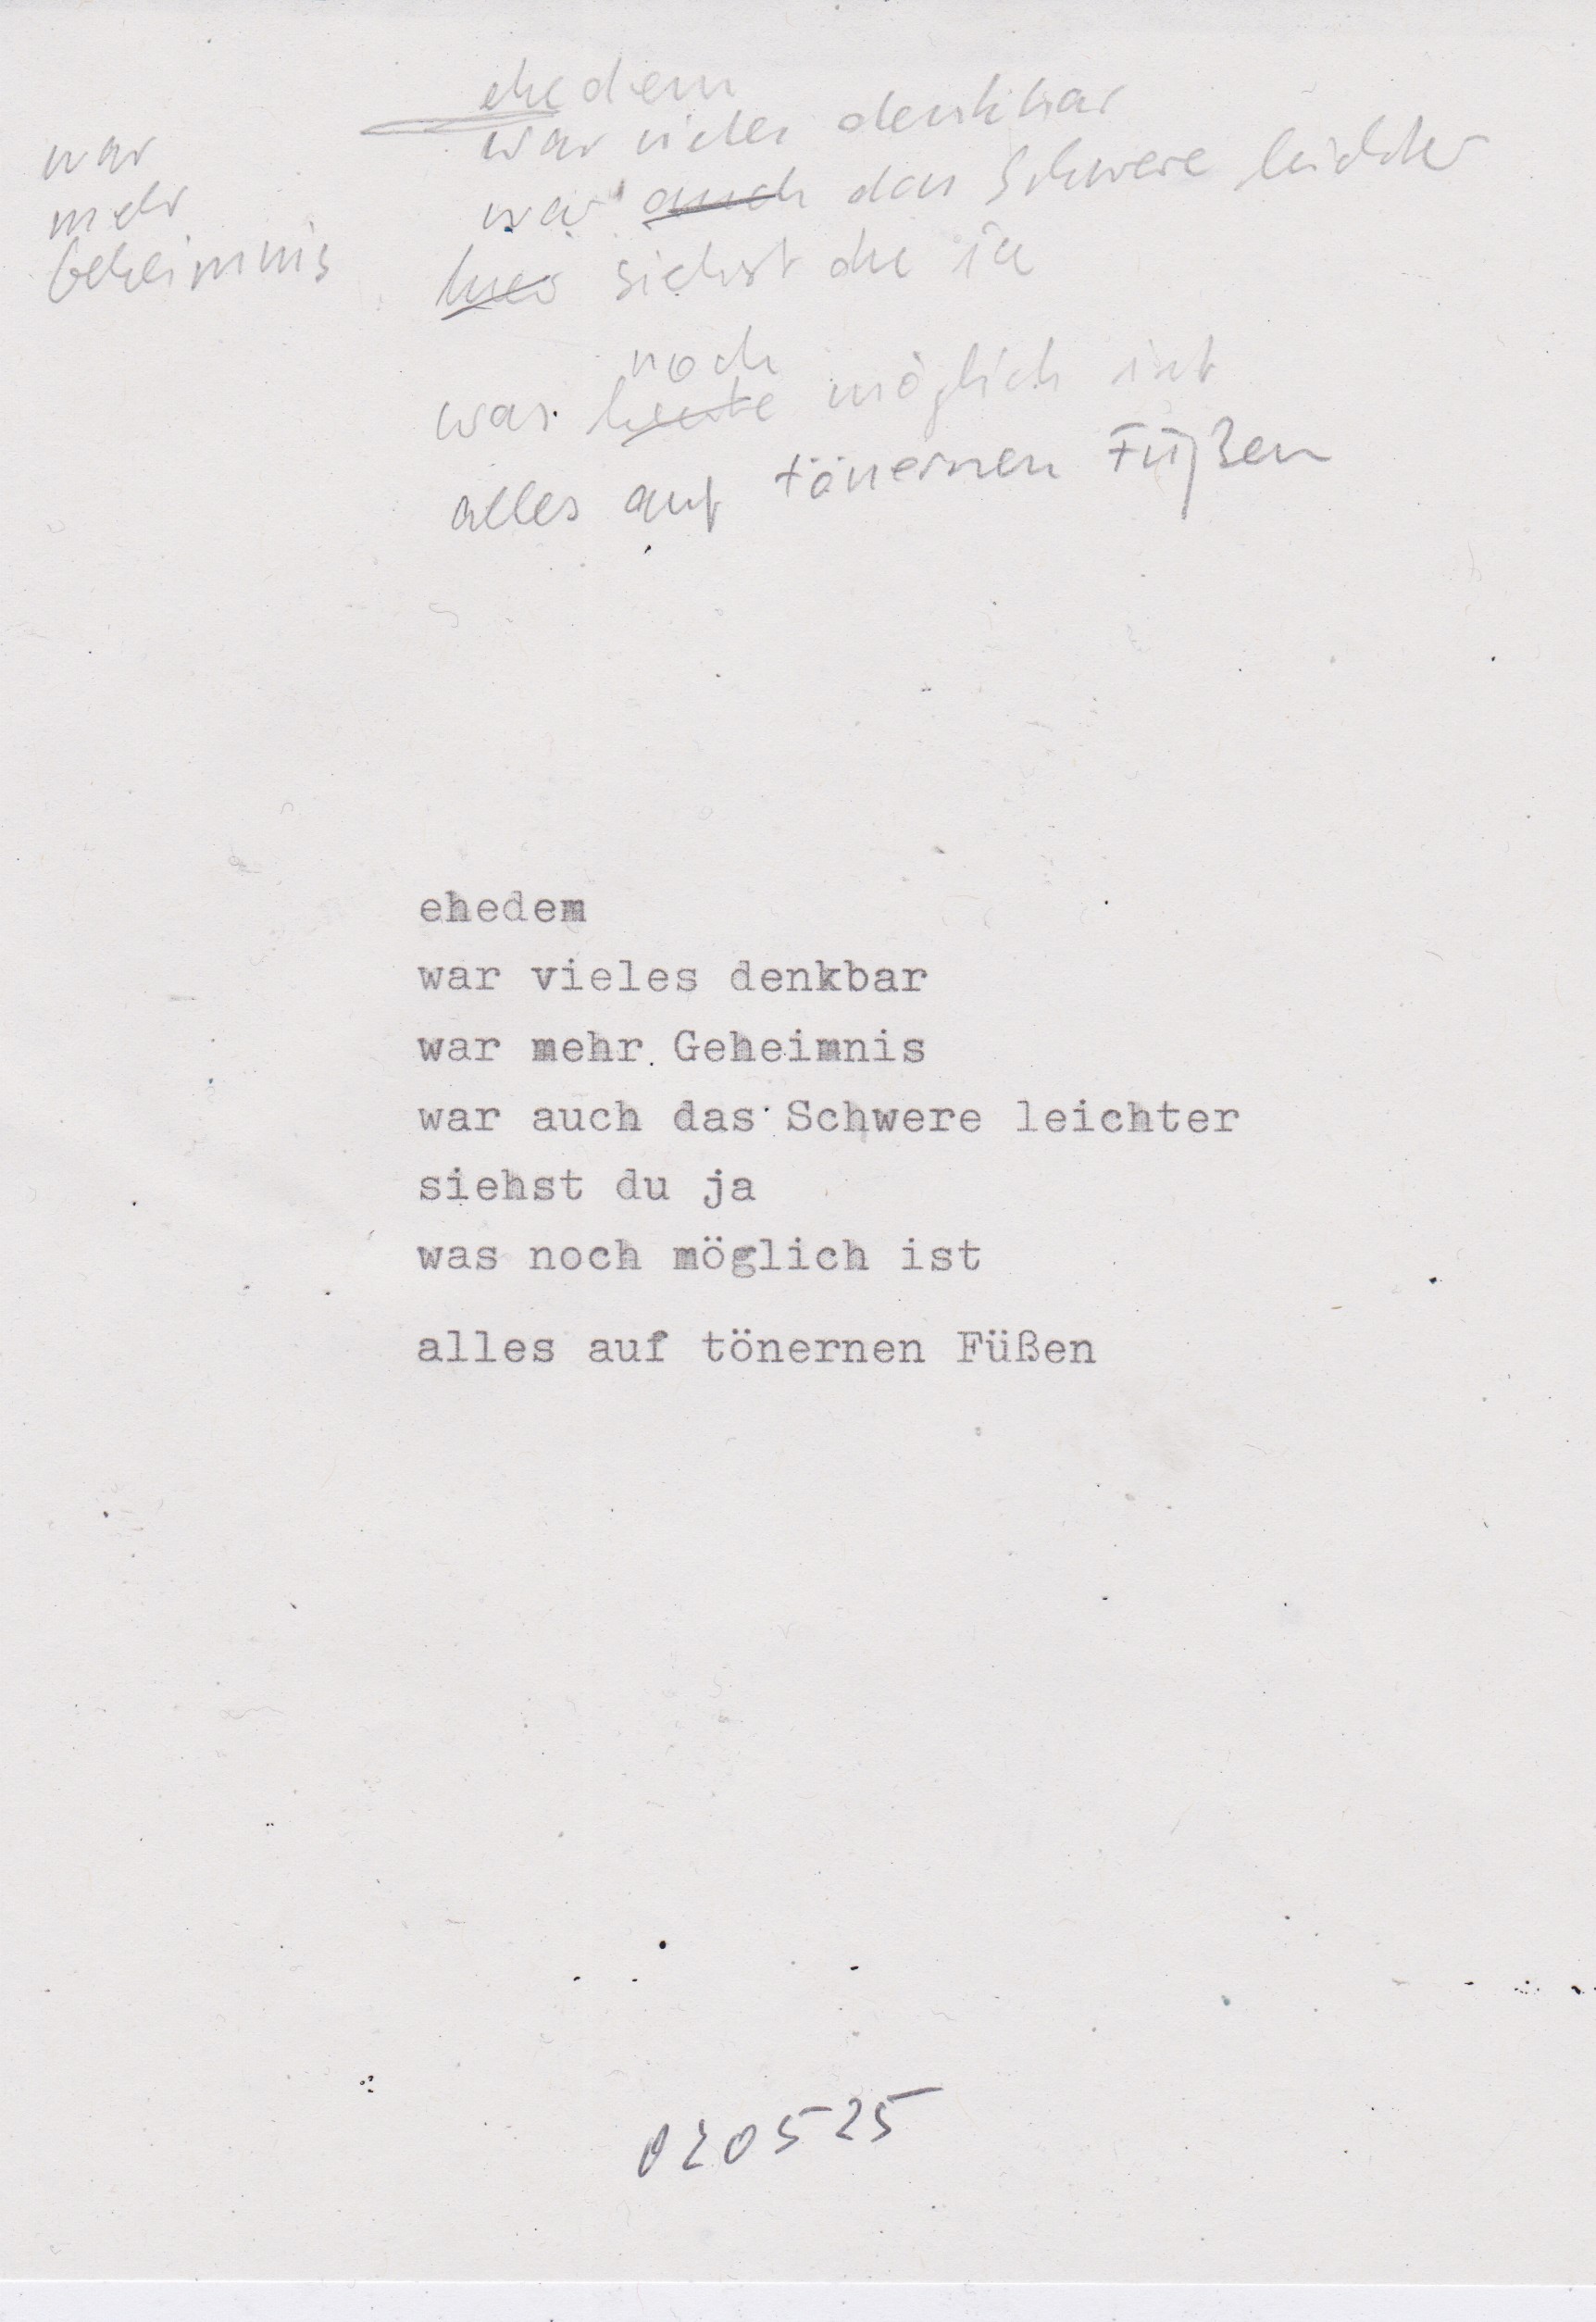 ehedem
war vieles denkbar
war auch das Schwere leichter
war
mehr
Geheimnis
siehst du ja
noch
was heute möglich ist
alles auf tönernen Füßen
ehedem
war vieles denkbar
war mehr Geheimnis
war auch das Schwere leichter
siehst du ja
was noch möglich ist
alles auf tönernen Füßen
020525